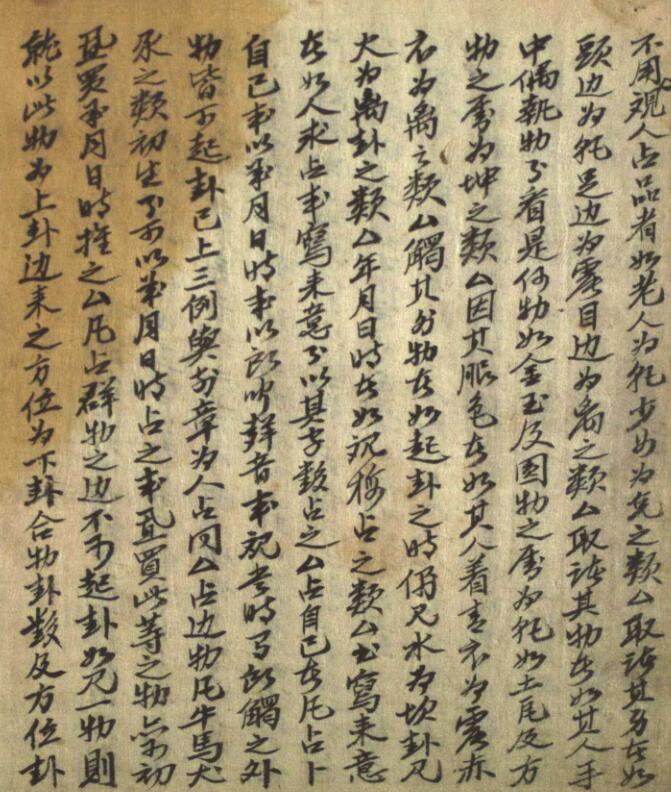 不用观人占品者如老人为乾少女为兑之類厶取诸其身者如
頭边为乾足边为震目边为离之類厶取诸其物者如其人手
中偶執物可看是何物如金玉及圆物之属为乾如土瓦及方
物之属为坤之類厶因其服色者如其人着青衣为震赤
衣为离之類厶觸其外物者如起卦之時仍见水为坎卦见
火为离卦之類厶年月日時者如观梅占之類厶書寫来意
者如人求占事寫来意可以其字数占之厶占自己者凡占卜
自己事以年月日時事以所听声音事观当時有所觸之外
物皆可起卦已上三例與前章为人占同厶占边物凡牛馬犬
豕之類初生可以年月日時占之事置買此等之物亦可初
置買年月日時推之厶凡占群物之边不可起卦如见一物則
能以此物为上卦边来之方位为下卦合物卦数及方位卦